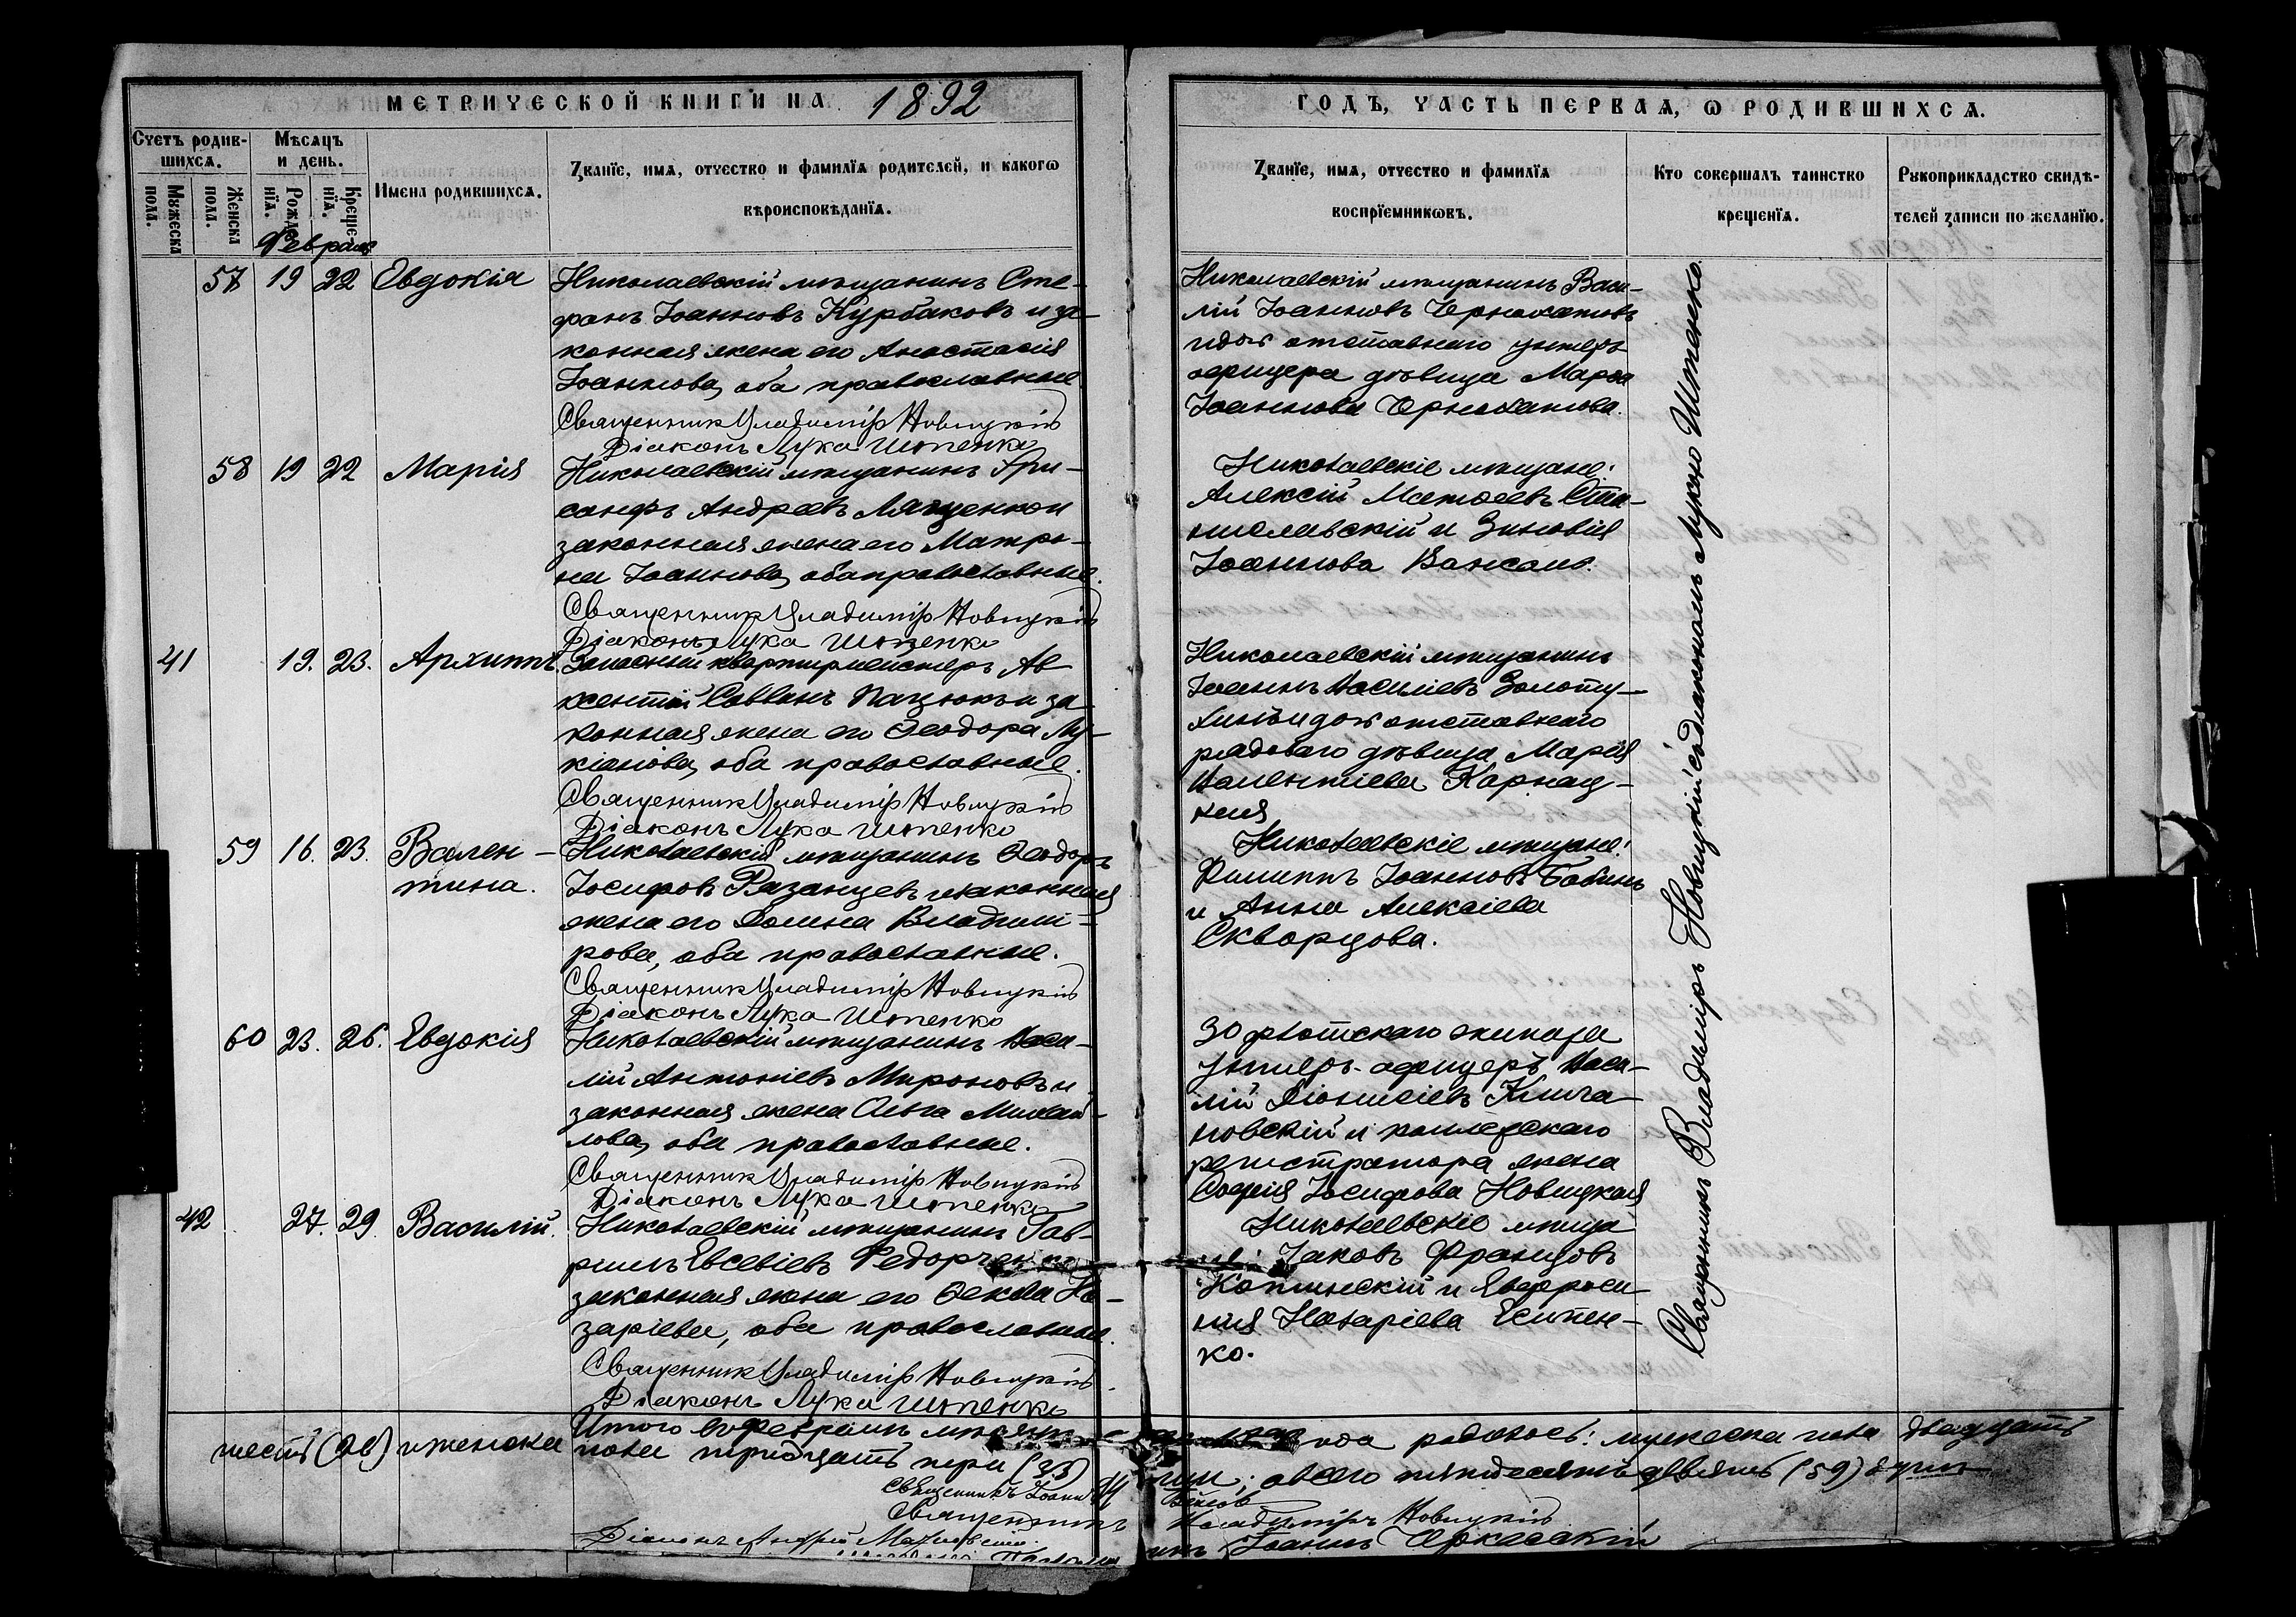 МЕТРИЧЕСКОЙ КНИГИ НА 1892
ГОДЪ, ЧАСТЬ ПЕРВАЯ, Ѡ РОДИВШИХСЯ.
Счетъ родив-
шихся.
Мужеска
пола.
Женска
пола.
Мѣсяцъ
и день.
Рожде-
нїя.
Креще-
нїя.
Имена родившихся.
Званїе, имя, отчество и фамилїя родителей, и какогѡ
вѣроисповѣданїя.
Званїе, имя, отчество и фамилїя
воспрїемникѡвъ.
Кто совершалъ таинство
крещенїя.
Рукоприкладство свидѣ-
телей записи по желанїю.
Февраль
57 19 22 Евдокія
Николаевскій мѣщанинъ Сте-
фанъ Іоанновъ Курбаковъ и за-
конная жена его Анастасія
Іоаннова, оба православные
Священник Владимір Новицкій
Діаконъ Лука Штенко
Николаевскій мѣщанинъ Васи-
лій Іоанновъ
и дочь отставнаго унтеръ
офицера дѣвица Марѳа
Іоаннова
58 19 22 Марія
Николаевскій мѣщанинъ Хри-
санфъ Андреевъ Лященко и
законная жена его Матро-
на Іоаннова, оба православные.
Священник Владимір Новицкій
Діаконъ Лука Штенко
Николаевскіе мѣщане:
Алексій Матѳеевъ Ста-
ниславскій и Зиновія
Іоаннова
41 19. 23. Архиппъ.
Запасный квартирмейстеръ Ав-
ксентій Саввинъ Пацюкъ и за-
конная жена его Ѳеодора Лу-
кіанова, оба православные.
Священник Владимір Новицкій
Діаконъ Лука Штенко
Николаевскій мѣщанинъ
Іоаннъ Василіевъ Золоту-
хинъ и дочь отставнаго
рядоваго дѣвица Марія
Валентіева Карнац-
кая
59 16. 23. Вален-
тина.
Николаевскій мѣщанинъ Ѳеодоръ
Іосифовъ Рязанцевъ и законная
жена его Домна Владимі-
рова, оба православные.
Священник Владимір Новицкій
Діаконъ Лука Штенко
Николаевскіе мѣщане:
Филиппъ Іоанновъ Бабинъ
и Анна Алексіева
Скворцова.
60 23. 26. Евдокія
Николаевскій мѣщанинъ Васи-
лій Антоніевъ Мироновъ и
законная жена Ольга Михай-
лова, оба православные.
Священник Владимір Новицкій
Діаконъ Лука Штенко
30 флотскаго экипажа
унтеръ-офицеръ Васи-
лій Діонисіевъ
и коллежскаго
регистратора жена
Софія Іосифова Новицкая
42 27. 29. Василій.
Николаевскій мѣщанинъ Гав-
риилъ Евсевіевъ Федорченко
законная жена его Ѳекла На-
заріева, оба православные.
Священник Владимір Новицкій
Діаконъ Лука Штенко
Николаевскіе мѣща-
не: Іаковъ Францовъ
Копчинскій и Евфроси-
нія Назаріева Есипен-
ко.
Священникъ Владиміръ Новицкій съ діакономъ Лукою Штенко.
Итого въ февралѣ мѣсяцѣ года родилось: мужеска пола двадцать
шесть (26) и женска пола тридцать три (33) всего пятьдесятъ девять (59) душъ
Священникъ Іоаннъ
Священникъ Владиміръ Новицкій
Діаконъ Андрей
Іоаннъ Черкасскій